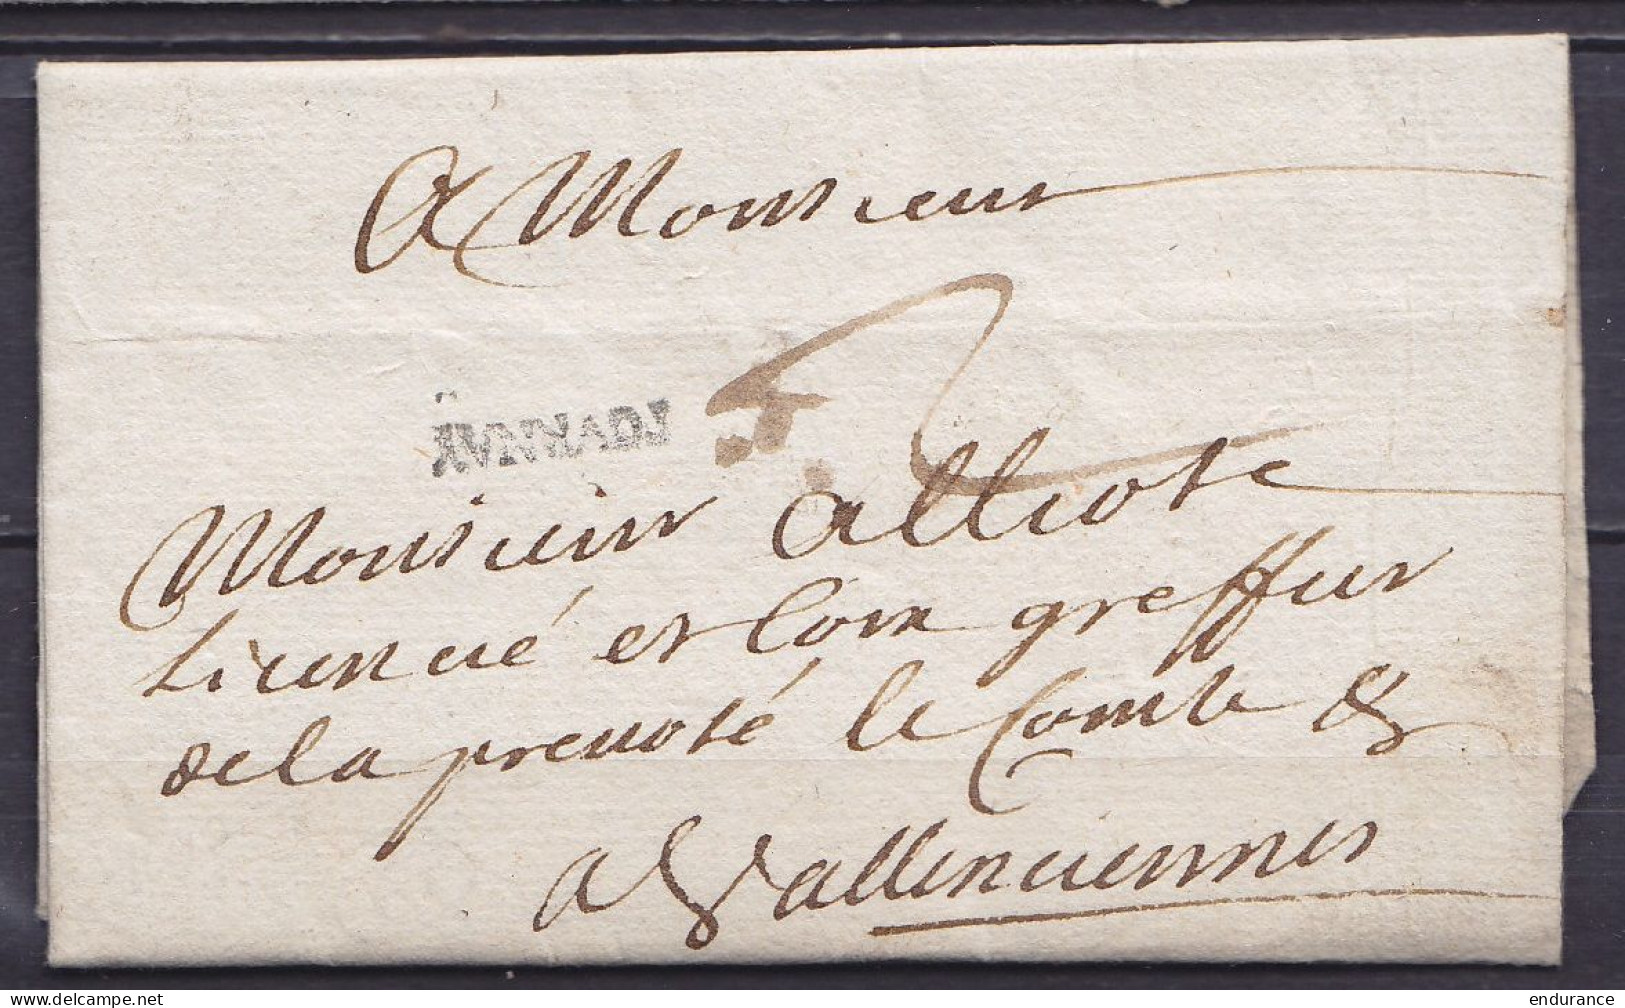 A Monsieur
Monsieur Alliote
Licencié et Com greffier
de la prevoté le Comte &
a Vallenciennes
delcampe.net
endurance